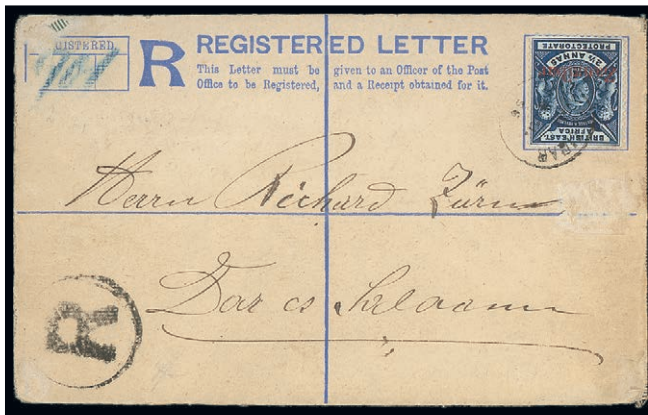 GISTERED
R REGISTERED LETTER
This Letter must be given to an Officer of the Post
Office to be Registered, and a Receipt obtained for it.
2½ ANNAS
PROTECTORATE
BRITISH EAST
AFRICA
Herrn Richard Zürn
Dar es Salaam
R